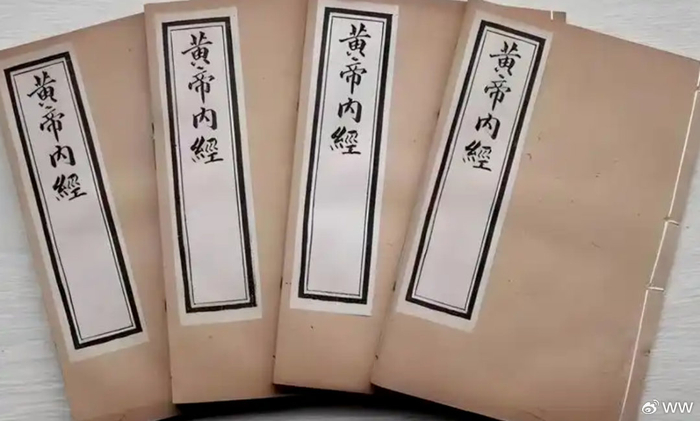 黄帝内經
黄帝内經
黄帝内經
黄帝内經
WW